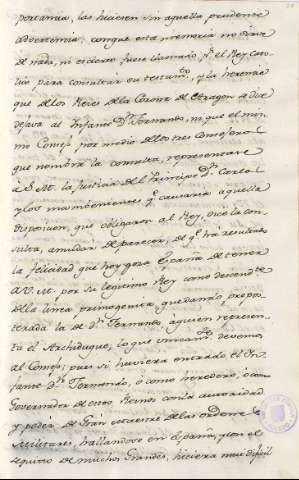 portancia, las hiciesen sin aquella prudente
advertencia; conque esta memoria no sirve
de nada, ni es cierto fuese llamado pr. el Rey Cato
lico para consultar su testamto. y la herencia
que de los Reÿes de la Corona de Aragon
dejava al Infante Dn. Fernando, ni que el mis
mo Consejo por medio de los tres Consejeros
que nombra la consulta, representase
a S. M. la justicia del Principe Dn. Carlos
y los inconbenientes qe. causaria aquella
disposicion, que obligaron al Rey, dice la con
sulta, a mudar de parecer, de qe. ha resultado
la felicidad que hoy goza España de tener
a V. M. por su legitimo Rey como descendte.
de la linea primogenita, quedando pospo-
nterada la de Dn. Fernando, a quien represen
ta el Archiduque, lo que unicamte. devemos
al Consejo; pues si huviera entrado el In-
fante Dn. Fernando, ó como heredero, ó como
Governador de estos Reinos con la autoridad
y poder de Gran Maestre de las ordenes
Militares, hallandose en España, y con el
sequito de muchos Grandes, hiciera mui dificil